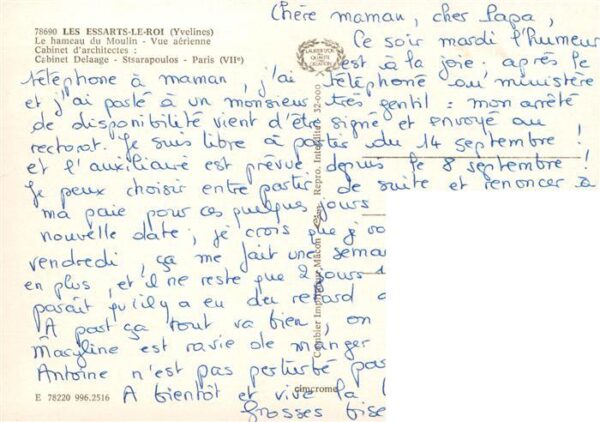 78690 LES ESSARTS-LE-ROI (Yvelines)
Le hameau du Moulin - Vue aérienne
Cabinet d'architectes :
Cabinet Delaage - Stsarapoulos - Paris (VIIe)
Chère maman, cher Papa,
Ce soir mardi l'humeur
est à la joie : après le
téléphone à maman, j'ai téléphoné au ministère
et j'ai parlé à un monsieur très gentil : mon arrêté
de disponibilité vient d'être signé et envoyé au
rectorat. Je suis libre à partir du 14 septembre !
et l'auxiliaire est prévue depuis le 8 septembre !
Je peux choisir entre partir de suite et renoncer à
ma paie pour ces quelques jours
nouvelle date ; je crois que j
vendredi, ça me fait une
en plus, et il ne reste que 2 jours
parait qu'il y a eu du retard
A part ça tout va bien, on
est ravie de manger
Antoine n'est pas perturbé
A bientôt et vive la
Grosses
LABEL D'OR
QUALITÉ
CRÉATION
Combier Imprimeur Mâcon Repro. Interdite 32-000
cimcrome
E 78220 996.2516